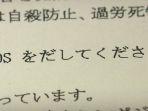 は自殺防止、過労死
OS をだしてくださ
っています。